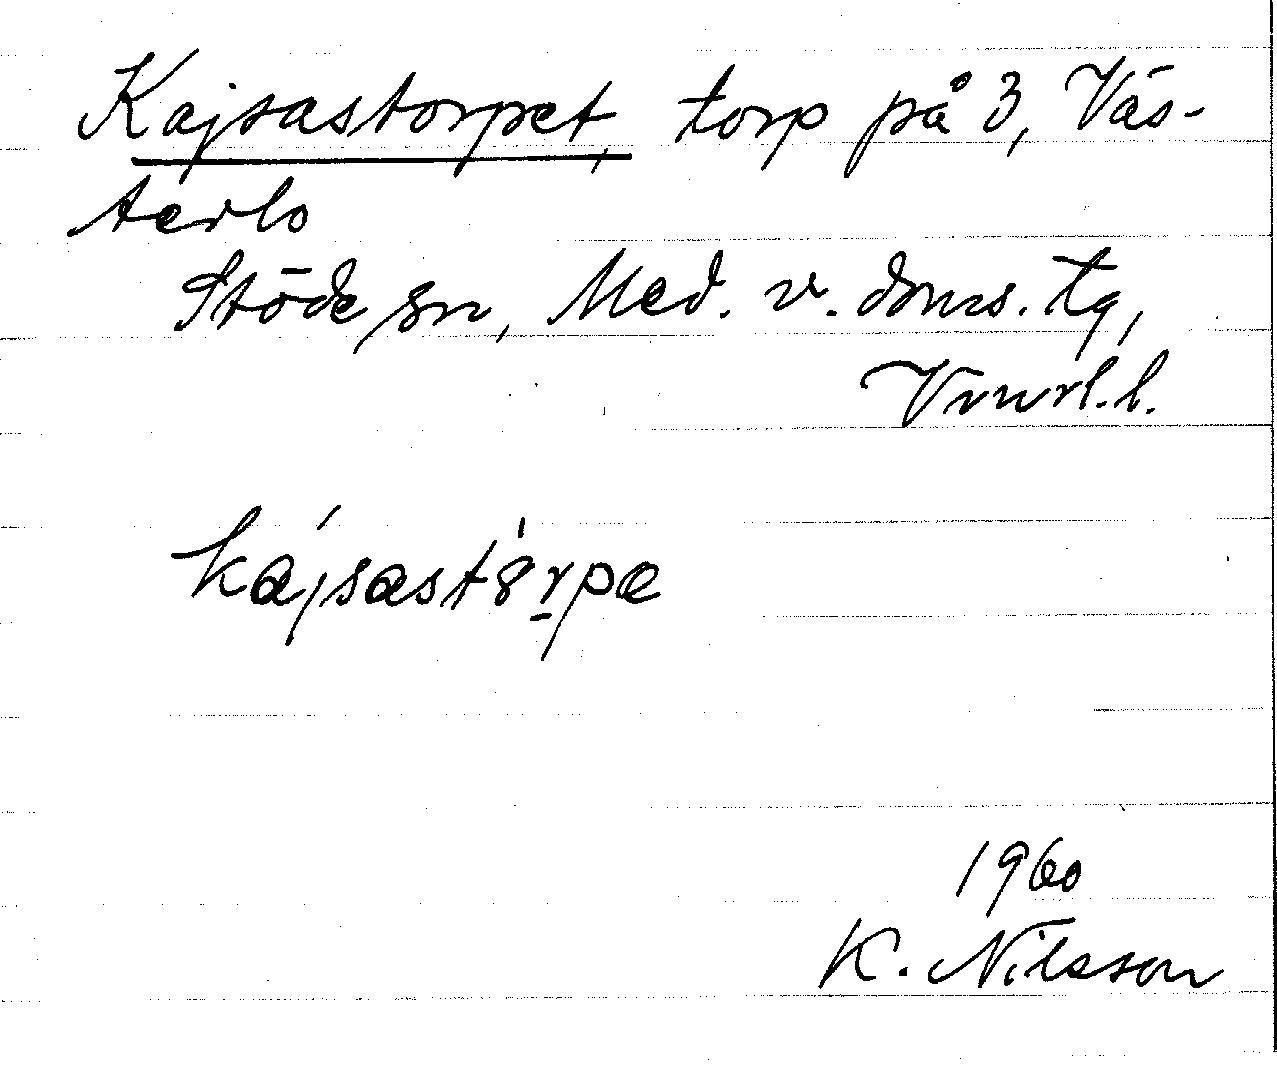 Kajsastorpet, torp på 3, Väs-
terlo
Stöde sn, Med. v. doms. tg,
Vnrl. l.
kajsastȯrpe
1960
K. Nilsson